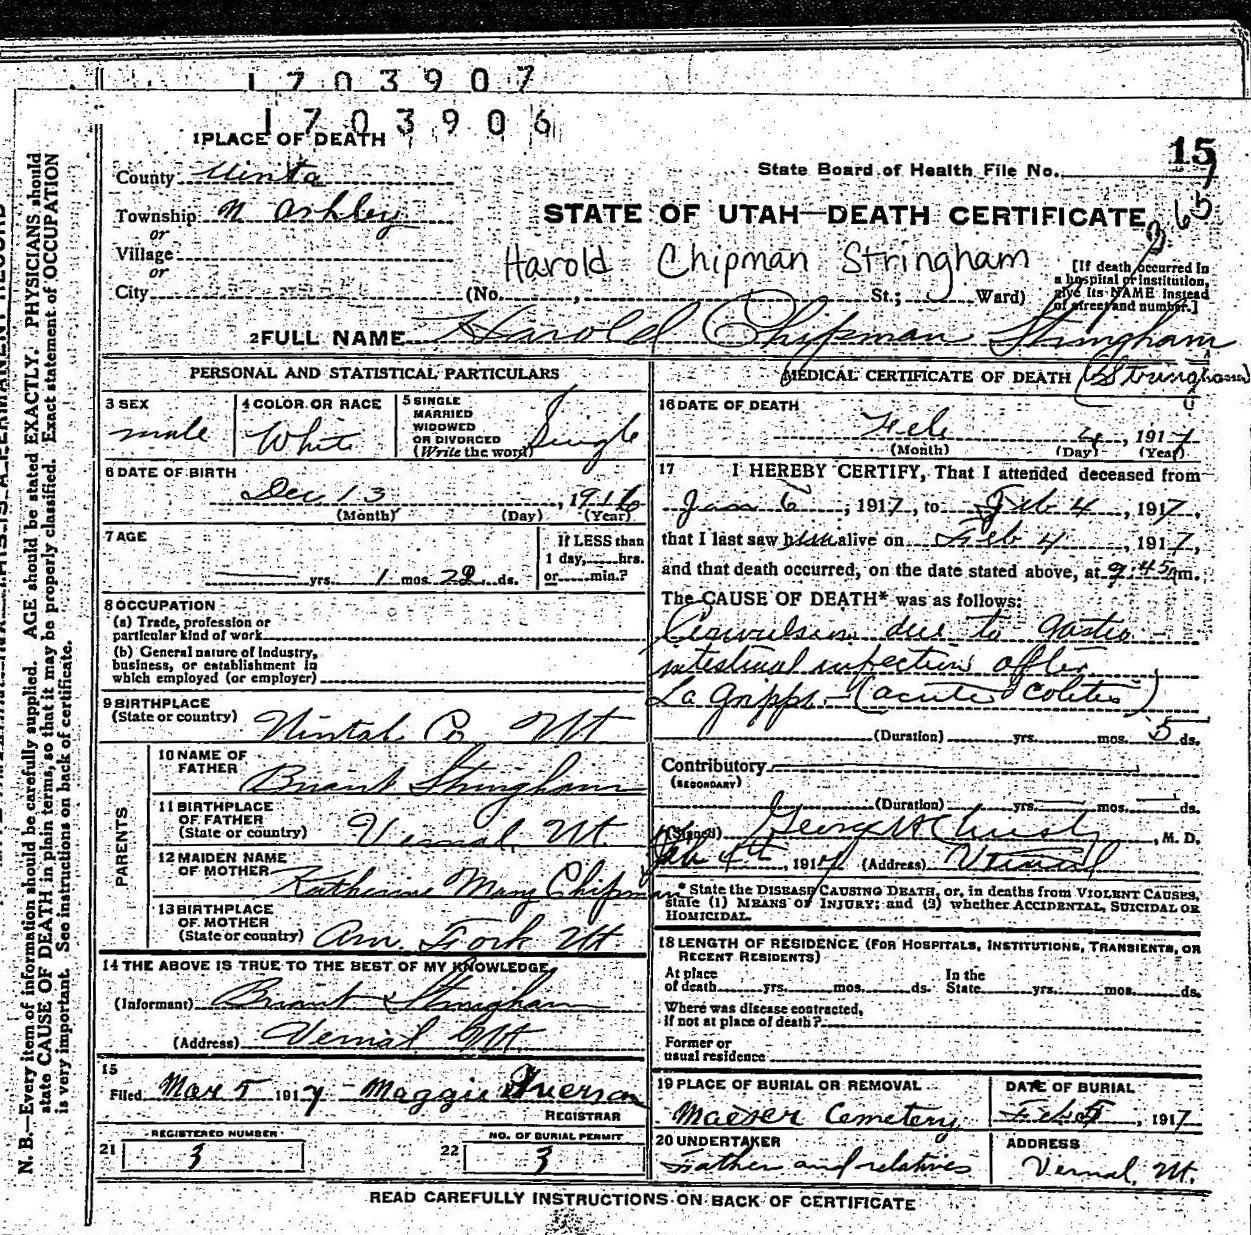 1703907
1703906
1 PLACE OF DEATH
15
State Board of Health File No.
County Uinta
Township N Ashley
265
STATE OF UTAH—DEATH CERTIFICATE
or
Village
or
Harold Chipman Stringham
City
(No. , St.; Ward)
[If death occurred in a hospital or institution, give its NAME instead of street and number.]
2 FULL NAME Harold Chipman Stringham
(Stringham)
PERSONAL AND STATISTICAL PARTICULARS
3 SEX male
4 COLOR OR RACE White
5 SINGLE MARRIED WIDOWED OR DIVORCED (Write the word) Single
6 DATE OF BIRTH
Dec 13, 1916
(Month) (Day) (Year)
7 AGE
yrs. 1 mos. 22 ds.
If LESS than 1 day, hrs. or min.?
8 OCCUPATION
(a) Trade, profession or particular kind of work
(b) General nature of industry, business, or establishment in which employed (or employer)
9 BIRTHPLACE
(State or country) Uintah Co Ut
PARENTS
10 NAME OF FATHER Briant Stringham
11 BIRTHPLACE OF FATHER (State or country) Vernal, Ut.
12 MAIDEN NAME OF MOTHER Katherine Mary Chipman
13 BIRTHPLACE OF MOTHER (State or country) Am. Fork Ut.
14 THE ABOVE IS TRUE TO THE BEST OF MY KNOWLEDGE
(Informant) Briant Stringham
(Address) Vernal Ut.
15
Filed Mar 5 1917 Maggie Iverson
REGISTRAR
REGISTERED NUMBER
21 3
NO. OF BURIAL PERMIT
22 3
MEDICAL CERTIFICATE OF DEATH
16 DATE OF DEATH
Feb 4, 1917
(Month) (Day) (Year)
17 I HEREBY CERTIFY, That I attended deceased from
Jan 6, 1917, to Feb 4, 1917,
that I last saw him alive on Feb 4, 1917,
and that death occurred, on the date stated above, at 9:45 m.
The CAUSE OF DEATH* was as follows:
Convulsion due to gastro-
intestinal infection after
La grippe—(acute colitis)
(Duration) yrs. mos. 5 ds.
Contributory
(SECONDARY)
(Duration) yrs. mos. ds.
(Signed) George H Christy, M. D.
Feb 4th, 1917 (Address) Vernal
* State the DISEASE CAUSING DEATH, or, in deaths from VIOLENT CAUSES,
state (1) MEANS OF INJURY; and (2) whether ACCIDENTAL, SUICIDAL OR
HOMICIDAL.
18 LENGTH OF RESIDENCE (FOR HOSPITALS, INSTITUTIONS, TRANSIENTS, OR
RECENT RESIDENTS)
At place of death yrs. mos. ds. In the State yrs. mos. ds.
Where was disease contracted,
if not at place of death?
Former or
usual residence
19 PLACE OF BURIAL OR REMOVAL
Maeser Cemetery
DATE OF BURIAL
Feb 5, 1917
20 UNDERTAKER
Father and relatives
ADDRESS
Vernal, Ut.
READ CAREFULLY INSTRUCTIONS ON BACK OF CERTIFICATE
N. B.—Every item of information should be carefully supplied. AGE should be stated EXACTLY. PHYSICIANS should
state CAUSE OF DEATH in plain terms, so that it may be properly classified. Exact statement of OCCUPATION
is very important. See instructions on back of certificate.